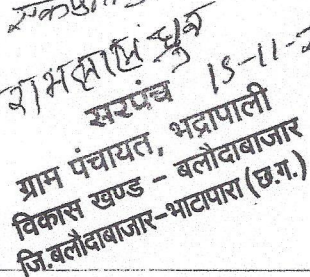 रामलाल ध्रुव 15-11-
सरपंच
ग्राम पंचायत, भद्रापाली
विकास खण्ड - बलौदाबाजार
जि.बलौदाबाजार-भाटापारा (छ.ग.)